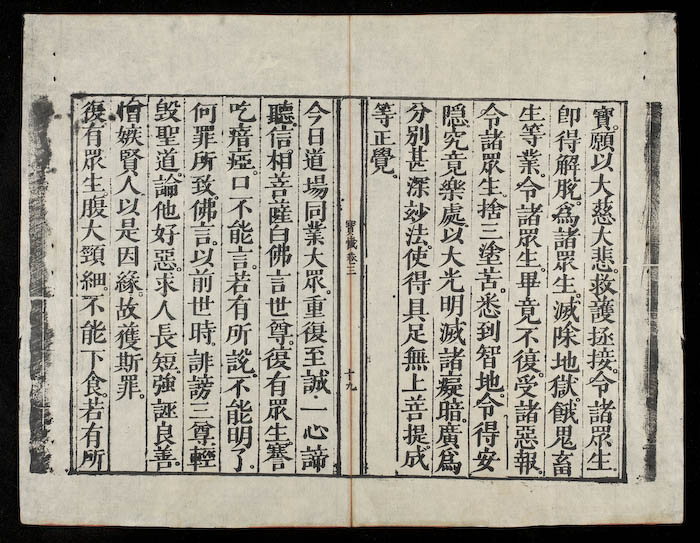 寶。願以大慈大悲。救護拯接。令諸眾生
卽得解脫。爲諸眾生。滅除地獄。餓鬼畜
生等業。令諸眾生。畢竟不復。受諸惡報。
令諸眾生捨三塗苦。悉到智地。令得安
隱究竟樂處。以大光明。滅諸癡暗。廣爲
分別甚深玅法。使得具足無上菩提。成
等正覺。
寶懺卷三
十九
今日道場同業大眾。重復至誠。一心諦
聽。信相菩薩白佛言世尊。復有眾生。謇
吃瘖瘂。口不能言。若有所說。不能明了。
何罪所致。佛言。以前世時。誹謗三尊。輕
毀聖道。論他好惡。求人長短。強誣良善。
憎嫉賢人。以是因緣。故獲斯罪。
復有眾生。腹大頸細。不能下食。若有所